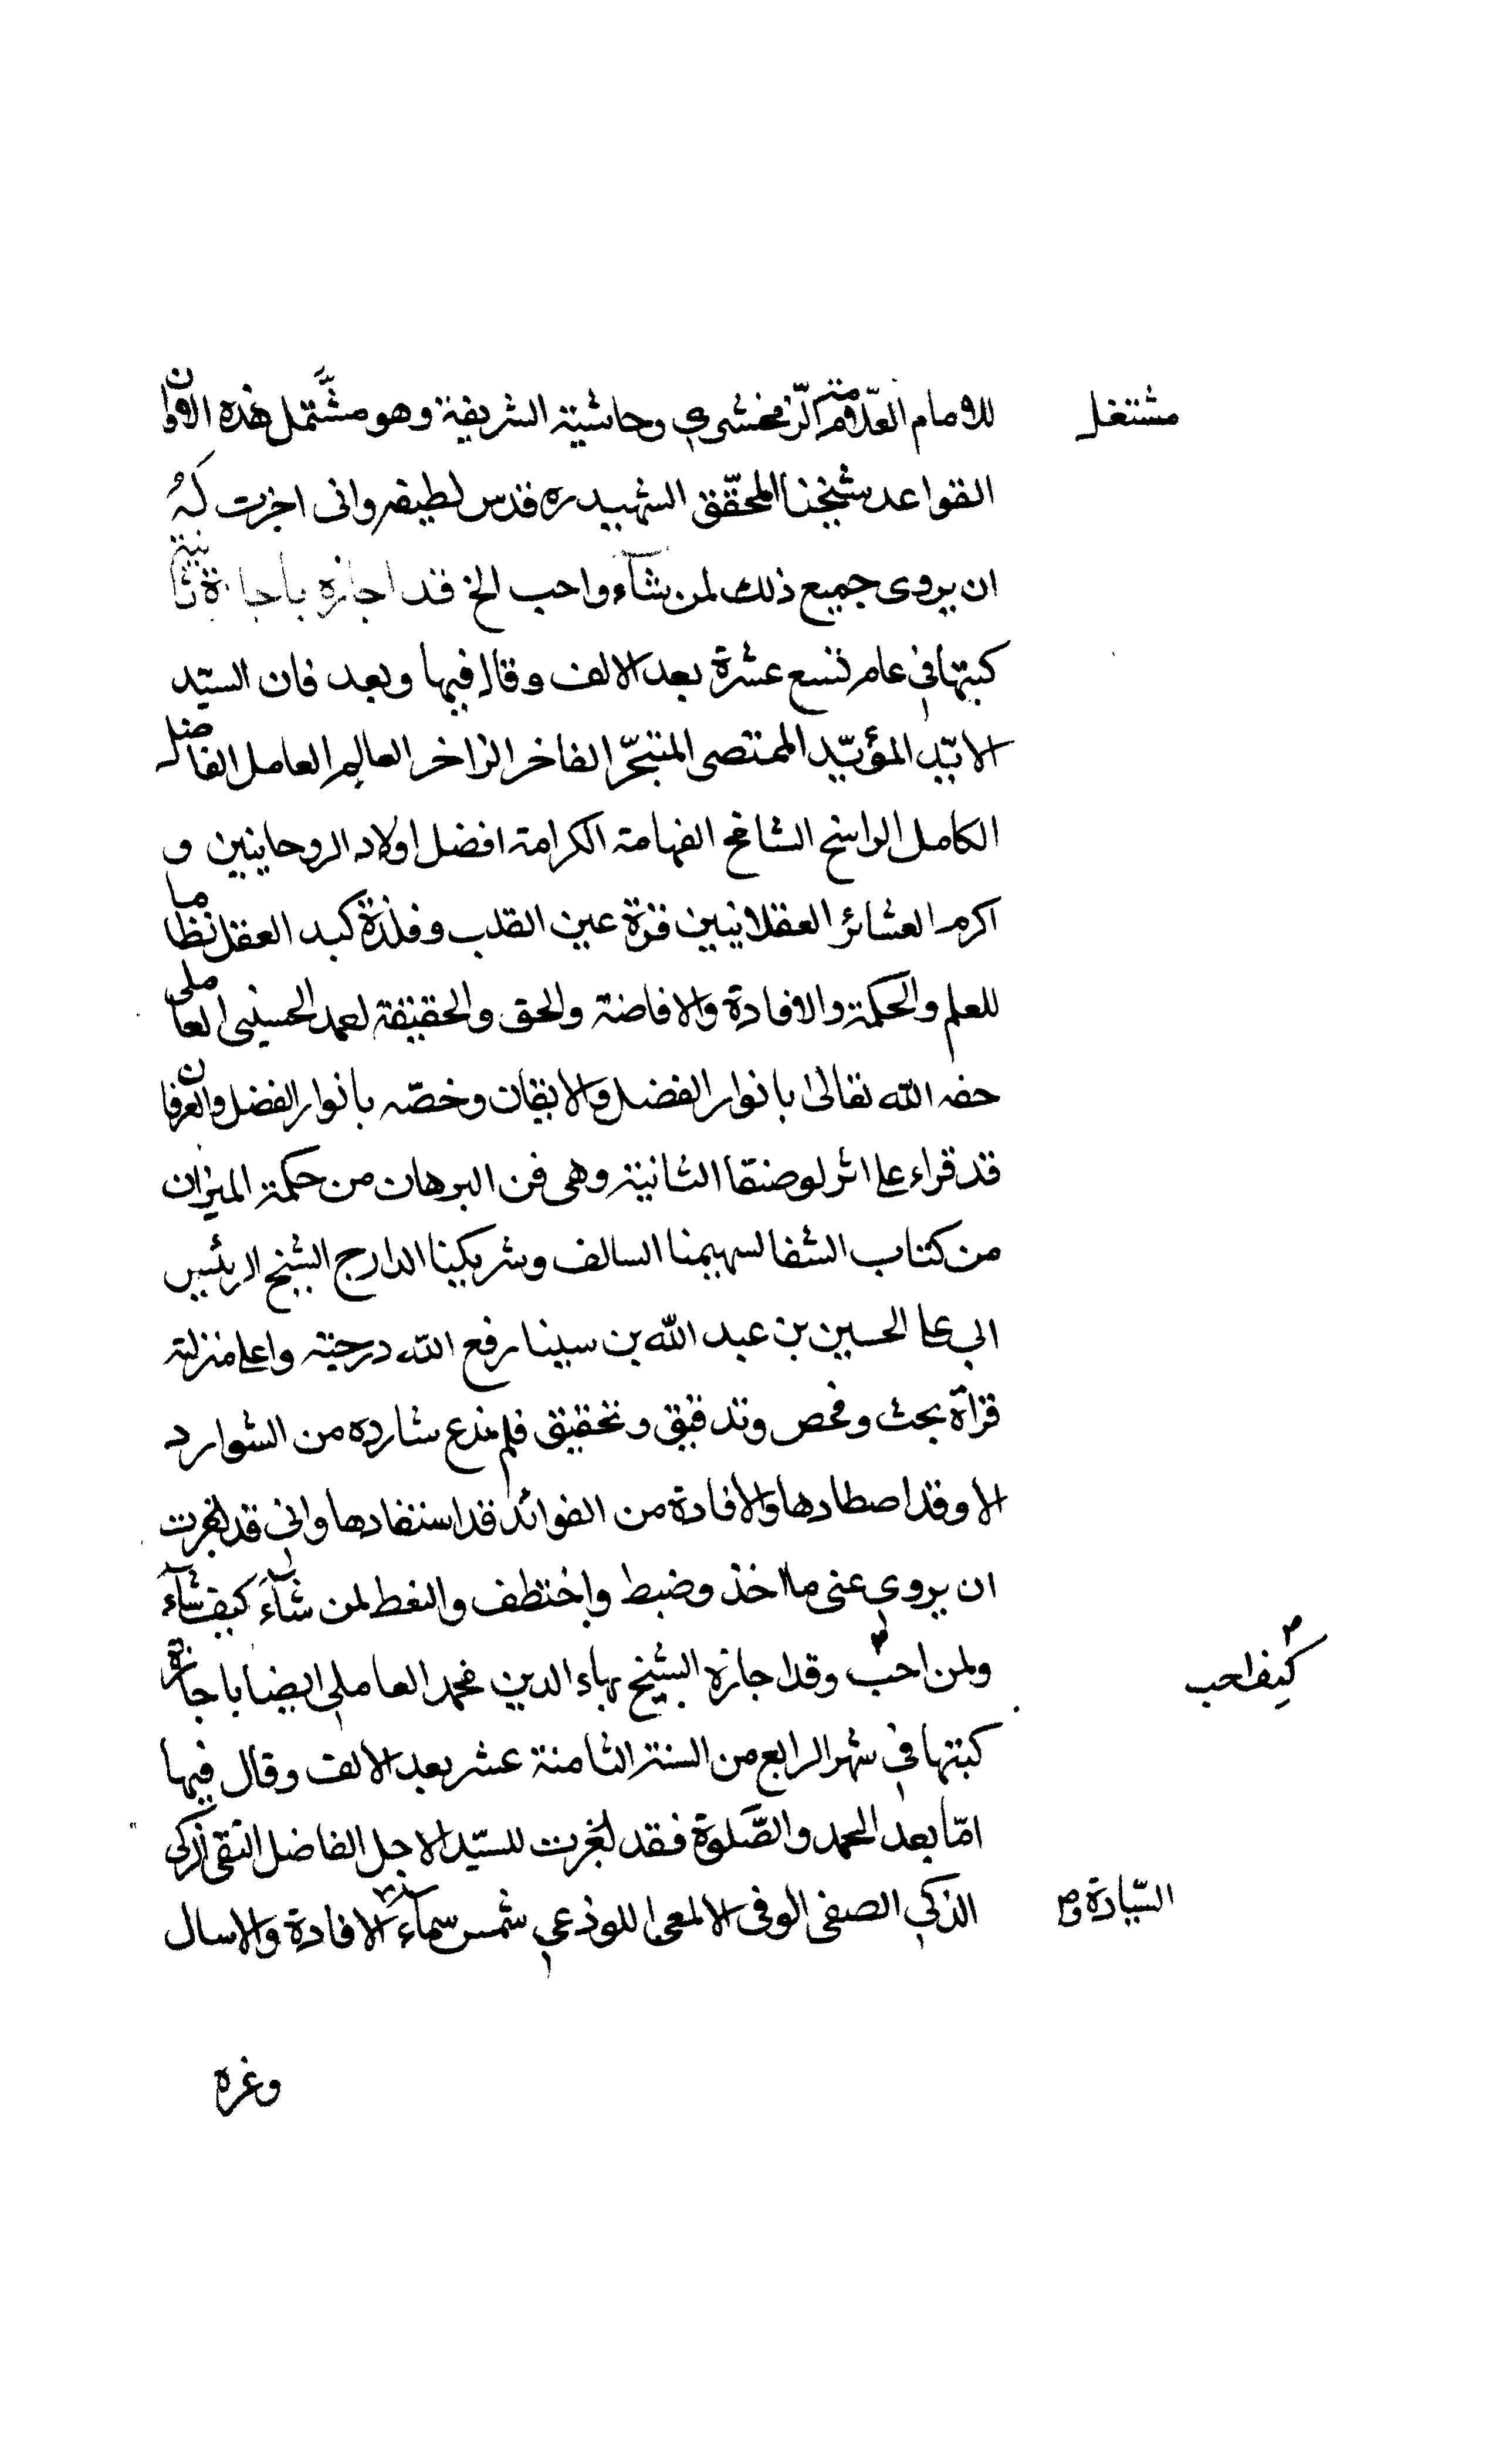 للامام العلامة الزمخشري وحاشيته الشريفة وهو مشتمل هذه الاوان
مشتغل
القواعد شيخنا المحقّق الشهيد ره قدس لطيفه وانى اجزت لَهُ
ان يروى جميع ذلك لمن شآء واحب الخ قد اجازه باجازة ثانية
كتبتها في عام تسع عشرة بعد الالف وقال فيها وبعد فان السيّد
الايّد المؤيّد الممتصى المتبحّر الفاخر الزاخر العالم العامل الفاضل
الكامل الراسخ الشامخ الفهامة الكرامة افضل اولاد الروحانيين و
اكرم العشائر العقلانيين قرة عين القلب وفلذة كبد العقل نظاما
للعلم والحكمة والافادة والافاضة والحق والحقيقة احمد الحسيني العاملي
حفه الله تعالى بانوار الفضل والايقان وخصّه بانوار الفضل والعرفان
قد قراء على اثر لوصنقا الثانية وهى فن البرهان من حكمة الميزان
من كتاب الشفا لسهيمنا السالف وشريكينا الدارج الشيخ الرئيس
ابي على الحسين بن عبد الله بن سينا رفع الله درجته واعلى منزلته
قرآة بحث وفحص وتدقيق وتحقيق فلم يدع شارده من الشوارد
الا وقد اصطادها والافادة من الفوائد قد استفادها واني قد اجزت
ان يروي عنى ما اخذ وضبط واختطف والتقط لمن شآء كيف شآء
ولمن احب وقد اجازه الشيخ بهاء الدين محمد العاملي ايضا باجازة
كيف احب
كتبتها في شهر الرابع من السنة الثامنة عشر بعد الالف وقال فيها
امّا بعد الحمد والصَّلوة فقد اجزت للسيّد الاجل الفاضل التقى الزكى
الذكي الصفى الوفى الالمعي اللوذعي شمس سمآء الافادة والاسال
السّيادة و
وغرة